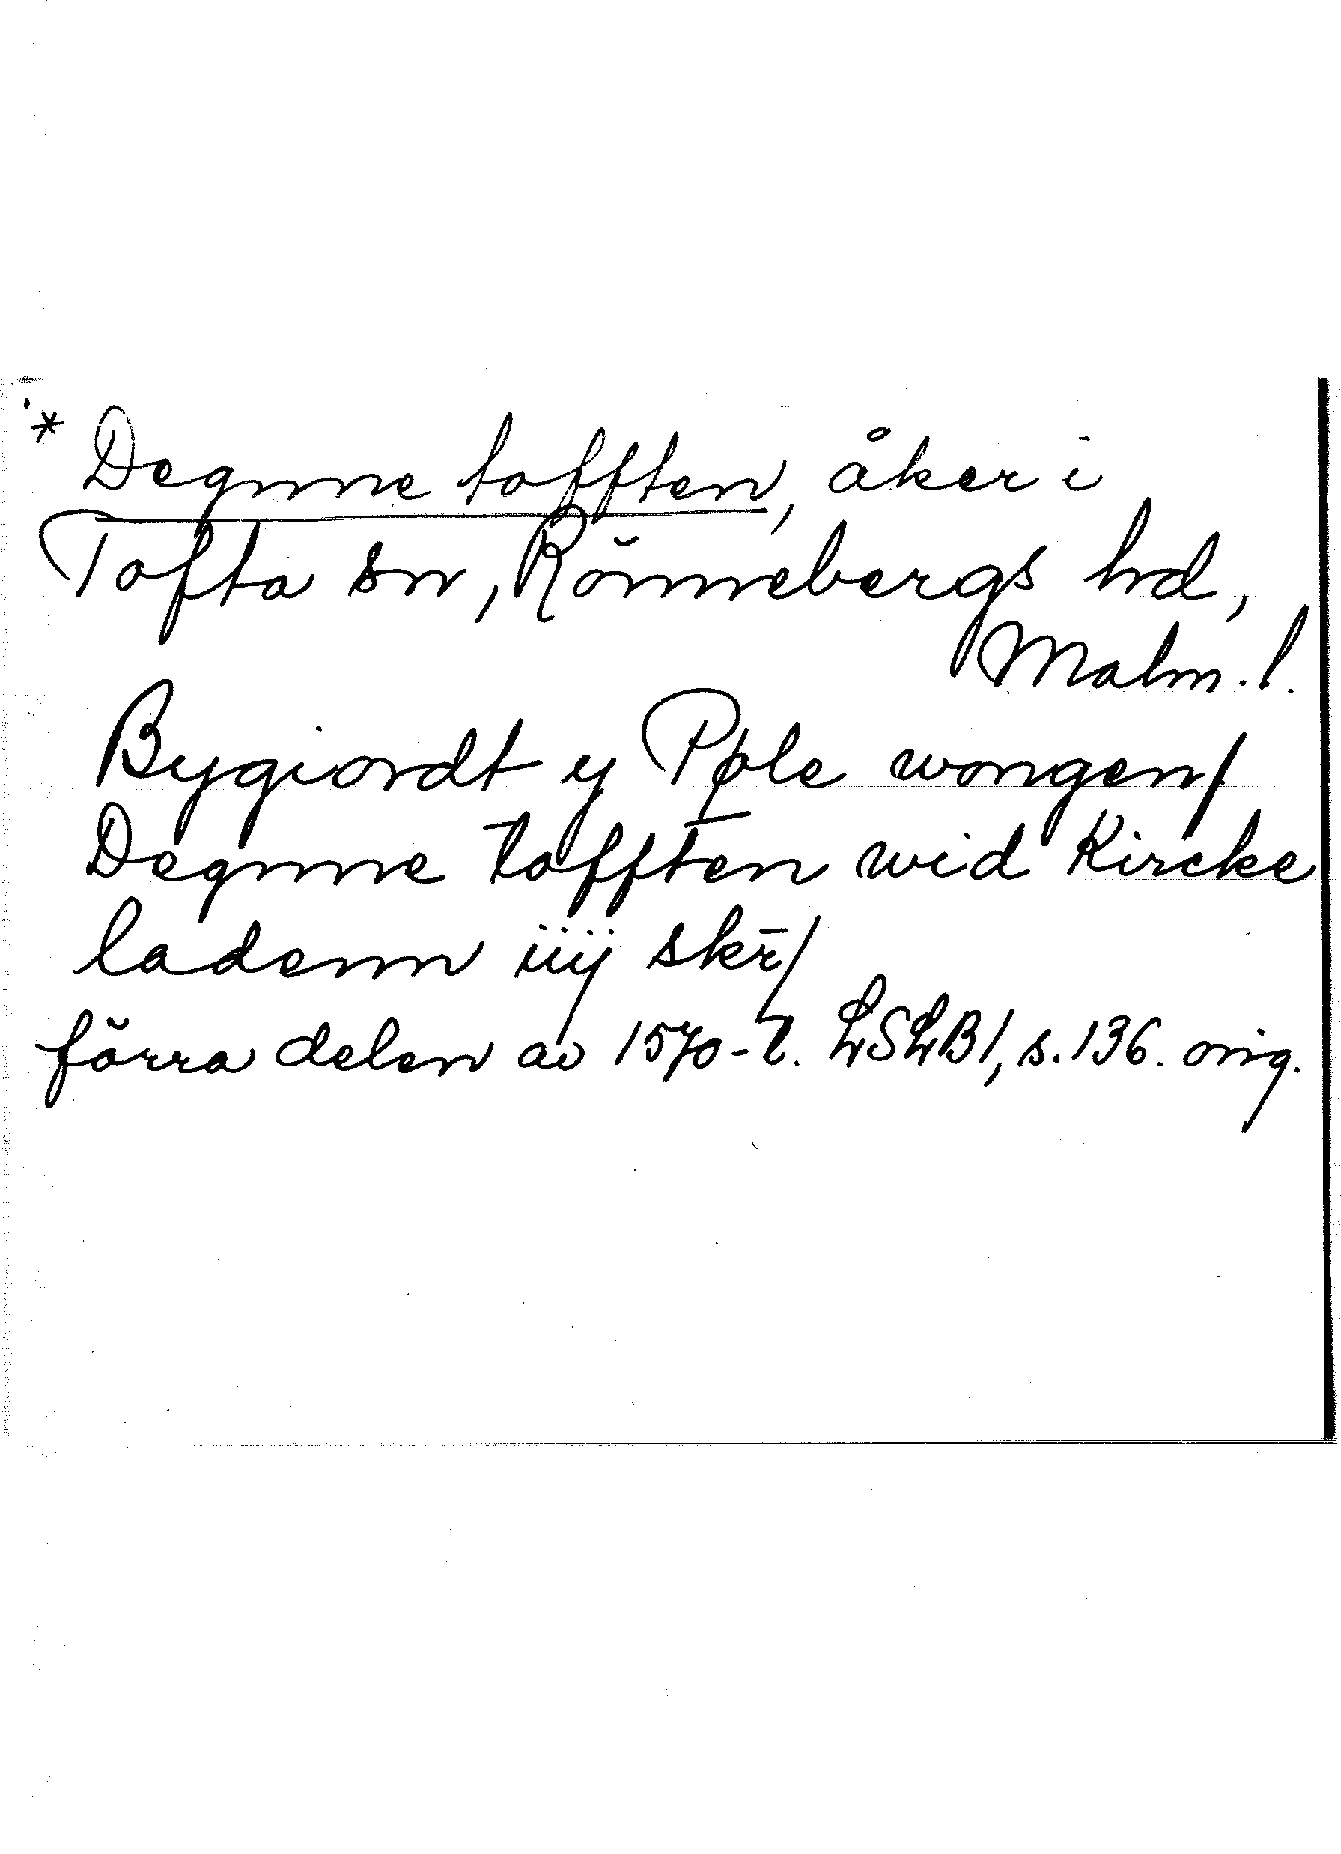 * Degnne tofften, åker i
Tofta sn, Rönnebergs hd,
Malm. l.
Bygiordt y Pple wongen/
Degnne tofften wid Kircke
ladenn iiij skr̄/
förra delen av 1570-t. LSLB1, s. 136. orig.